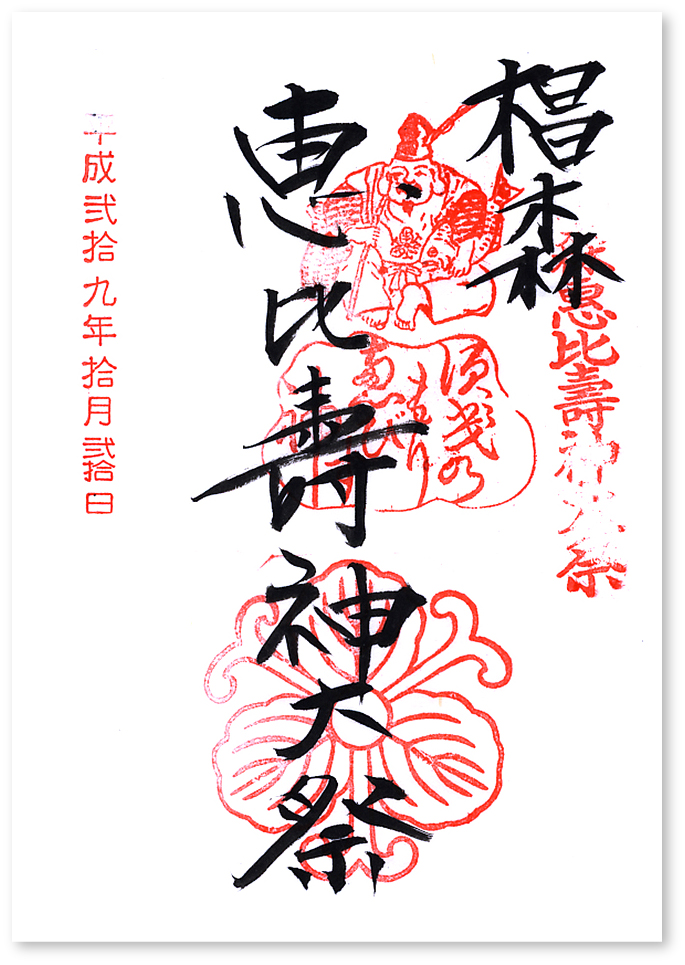 椙森
恵比壽神大祭
惠比壽神大祭
平成弐拾九年拾月弐拾日